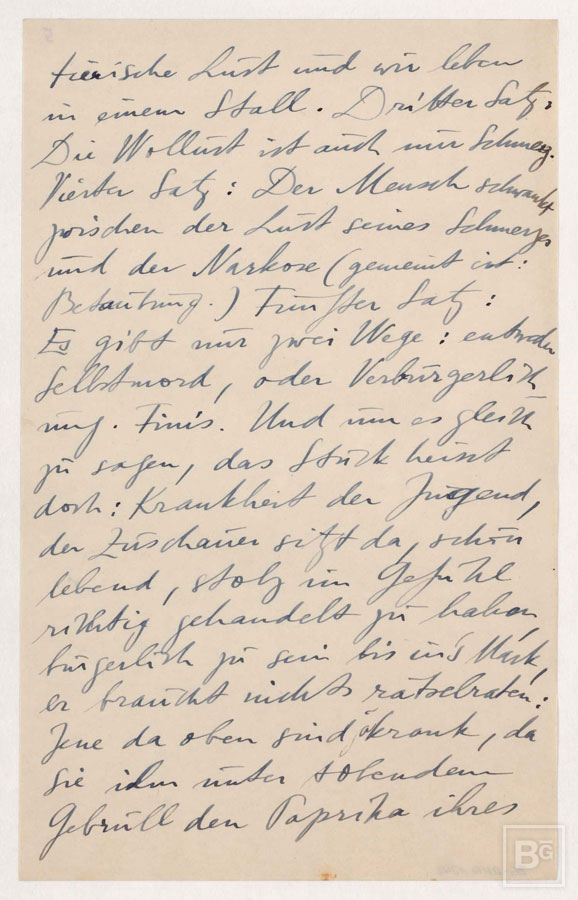 5
tierische Lust und wir leben
in einem Stall. Dritter Satz:
Die Wollust ist auch nur Schmerz.
Vierter Satz: Der Mensch schwankt
zwischen der Lust seines Schmerzes
und der Narkose (gemeint ist:
Betäubung.) Fünfter Satz:
Es gibt nur zwei Wege: entweder
Selbstmord, oder Verbürgerlich
ung. Finis. Und um es gleich
zu sagen, das Stück heisst
doch: Krankheit der Jugend,
der Zuschauer sitzt da, schön
lebend, stolz im Gefühl
richtig gehandelt zu haben,
bürgerlich zu sein bis in's Mark,
er braucht nichts rätselraten:
Jene da oben sind krank, da
sie ihm unter tobendem
Gebrüll den Paprika ihres
BG